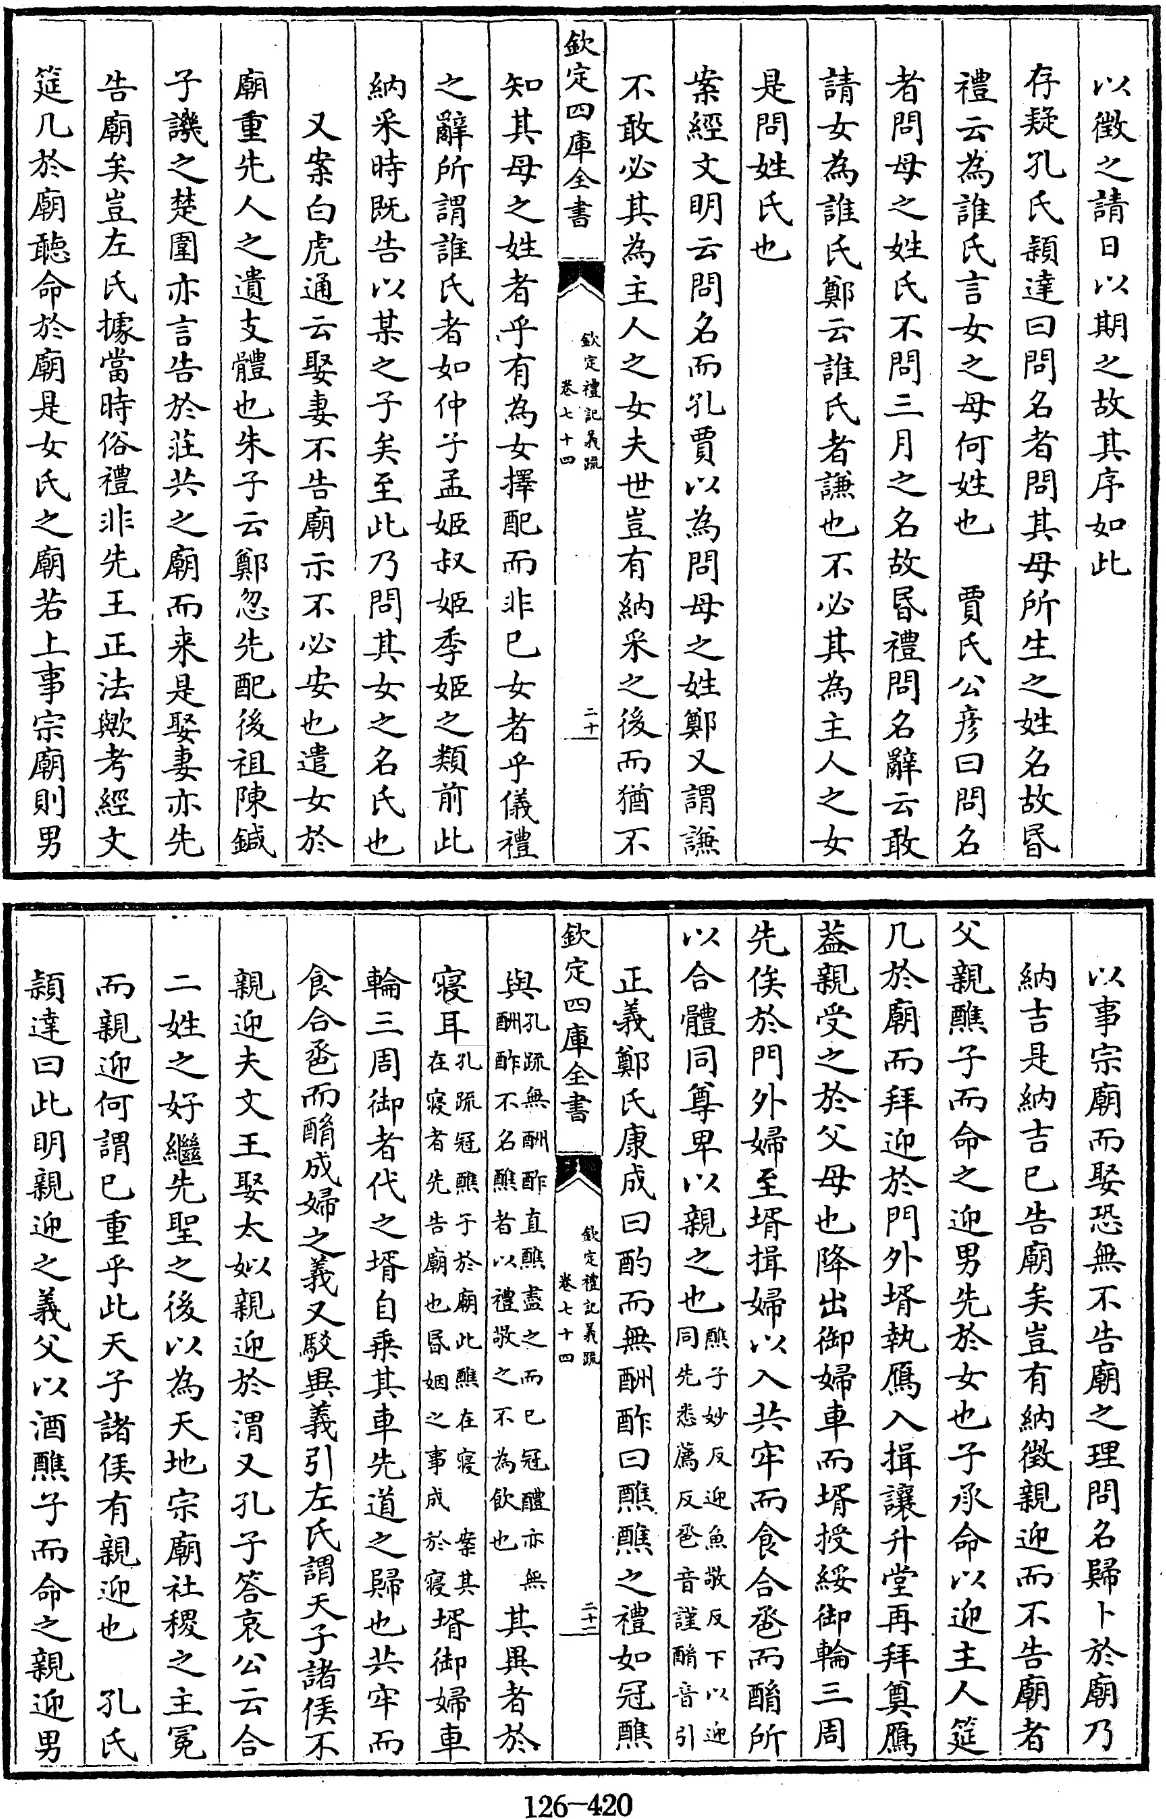 以徵之請日以期之故其序如此
存疑孔氏穎達曰問名者問其母所生之姓名故昬
禮云為誰氏言女之母何姓也　賈氏公彦曰問名
者問母之姓氏不問三月之名故昬禮問名辭云敢
請女為誰氏鄭云誰氏者謙也不必其為主人之女
是問姓氏也
案經文明云問名而孔賈以為問母之姓鄭又謂謙
不敢必其為主人之女夫世豈有納采之後而猶不
欽定四庫全書
欽定禮記義疏
卷七十四
二十
知其母之姓者乎有為女擇配而非已女者乎儀禮
之辭所謂誰氏者如仲子孟姬叔姬季姬之類前此
納采時既告以某之子矣至此乃問其女之名氏也
又案白虎通云娶妻不告廟示不必安也遣女於
廟重先人之遺支體也朱子云鄭忽先配後祖陳鍼
子譏之楚圍亦言告於莊共之廟而来是娶妻亦先
告廟矣豈左氏據當時俗禮非先王正法歟考經文
筵几於廟聽命於廟是女氏之廟若上事宗廟則男
以事宗廟而娶恐無不告廟之理問名歸卜於廟乃
納吉是納吉已告廟矣豈有納徴親迎而不告廟者
父親醮子而命之迎男先於女也子承命以迎主人筵
几於廟而拜迎於門外壻執鴈入揖讓升堂再拜奠鴈
葢親受之於父母也降出御婦車而壻授綏御輪三周
先俟於門外婦至壻揖婦以入共牢而食合卺而酳所
以合體同尊卑以親之也醮子妙反迎魚敬反下以迎同先悉薦反卺音謹酳音引
正義鄭氏康成曰酌而無酬酢曰醮醮之禮如冠醮
欽定四庫全書
欽定禮記義疏
卷七十四
二十一
與孔疏無酬酢直醮盡之而已冠醴亦無酬酢不名醮者以禮敬之不為飲也其異者於
寢耳孔疏冠醮子於廟此醮在寢　案其在寢者先告廟也昬姻之事成於寢壻御婦車
輪三周御者代之壻自乗其車先道之歸也共牢而
食合卺而酳成婦之義又駁異義引左氏謂天子諸侯不
親迎夫文王娶太姒親迎於渭又孔子答哀公云合
二姓之好繼先聖之後以為天地宗廟社稷之主冕
而親迎何謂已重乎此天子諸侯有親迎也　孔氏
穎達曰此明親迎之義父以酒醮子而命之親迎男
126-420